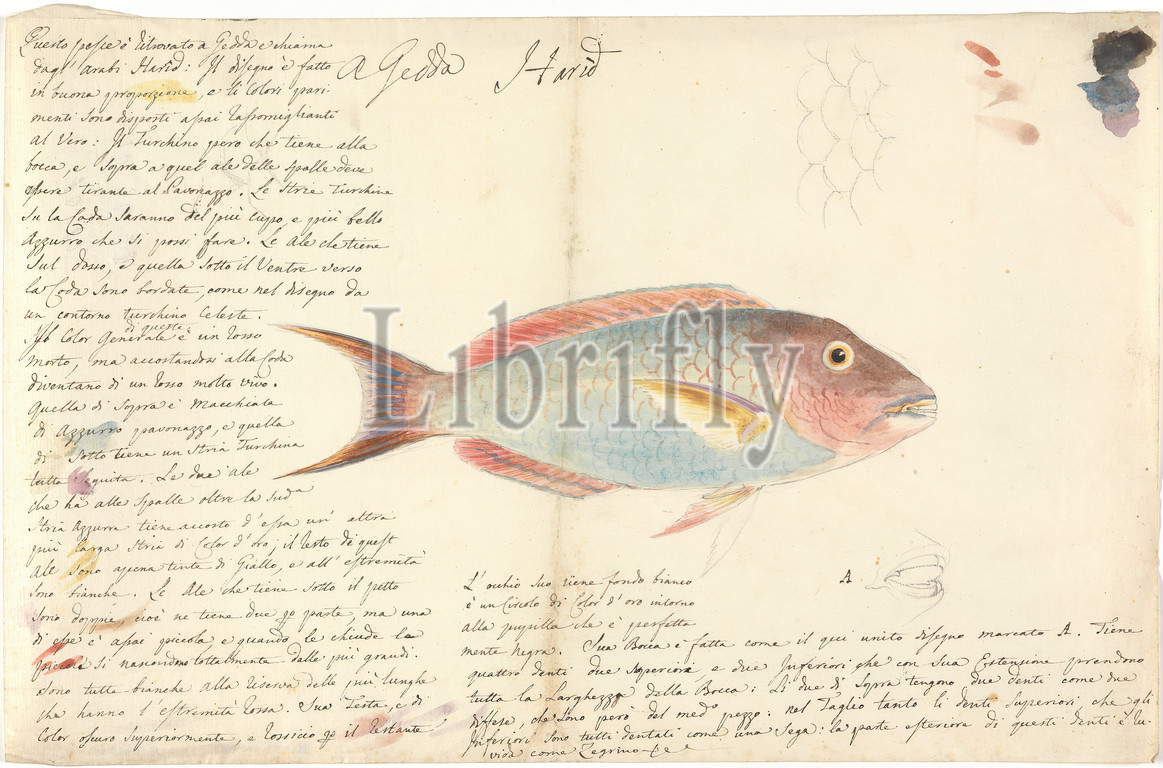 A Gedda Harid
Questo pesce è ritrovato a Gedda e chiama
dagl' Arabi Harid: Il disegno è fatto
in buona proporzione, e li Colori pari
menti sono disposti assai rassomiglianti
al Vero: Il Turchino pero che tiene alla
bocca, e sopra a quel ale delle spalle deve
essere tirante al Pavonazzo. Le Strie Turchine
su la Coda saranno del più cupo, e più bello
Azzurro che si possi fare. Le ale che tiene
sul dosso, e quella sotto il Ventre verso
la Coda sono bordate, come nel disegno da
un contorno turchino Celeste.
Color Generale di queste è un rosso
morto, ma accostandosi alla Coda
diventano di un rosso molto vivo.
Quella di Sopra è Macchiata
di Azzurro pavonazzo, e quella
di Sotto tiene un Stria Turchina
tutta seguita. Le due ale
che ha alle spalle oltre la sud.a
Stria Azzurra tiene accosto d'essa un' altra
più larga Stria di Color d'oro; il resto di quest
ale sono apena tinte di Giallo, e all' estremità
sono bianche. Le Ale che tiene sotto il petto
sono doppie, cioè ne tiene due per parte, ma una
di esse è assai piccola e quando le chiude le
piccole si nascondono tottalmente dalle più grandi.
sono tutte bianche alla riserva delle più lunghe
che hanno l'estremità rossa. Sua Testa, e di
Color oscuro superiormente, e rossiccio per il restante
L'occhio suo tiene fondo bianco
è un Circolo di Color d'oro intorno
alla pupilla che è perfetta
mente negra. Sua Bocca è fatta come il qui unito disegno marcato A. Tiene
quattro denti due Superiori e due Inferiori che con sua Estensione prendono
tutta la Larghezza della Bocca: Li due di Sopra tengono due denti come due
difese, che sono però del med.o pezzo: nel Taglio tanto li denti Superiori, che gli
Inferiori sono tutti dentati come una Sega: la parte esteriore di questi denti è lu-
vida come
A
Librifly